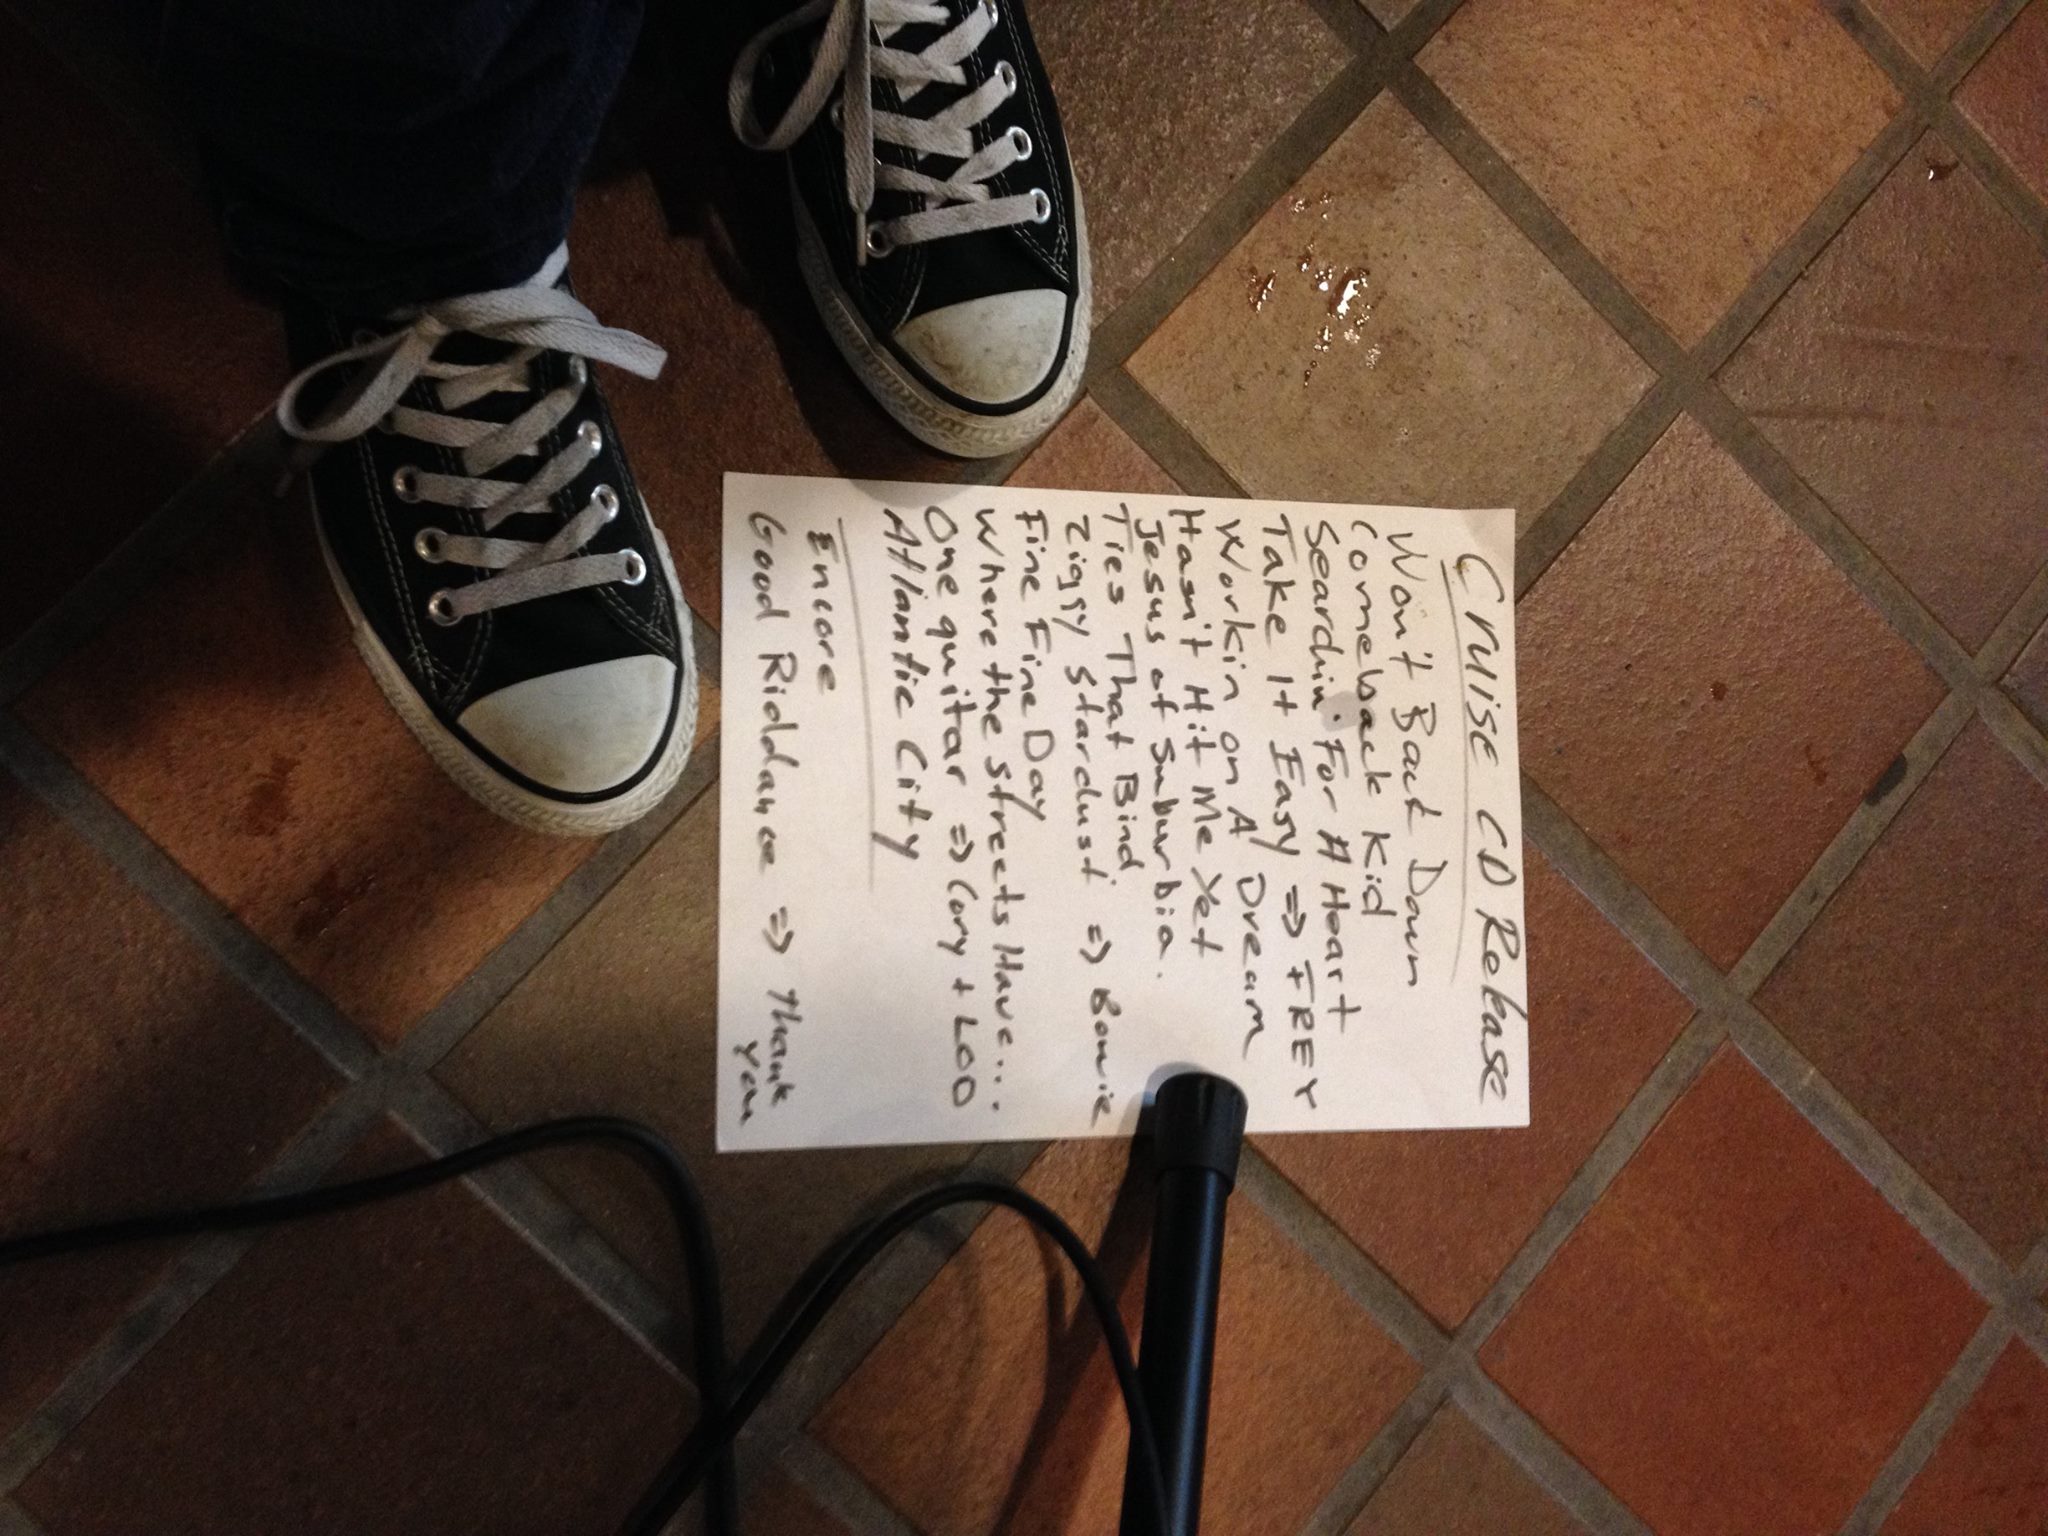 Cruise CD Release
Won't Back Down
Comeback Kid
Searchin' For A Heart
Take It Easy => FREY
Workin on A Dream
Hasn't Hit Me Yet
Jesus of Suburbia.
Ties That Bind
Ziggy Stardust => Bowie
Fine Fine Day
Where the streets Have...
One guitar => Cory + LOD
Atlantic City
Encore
Good Riddance => Thank
you